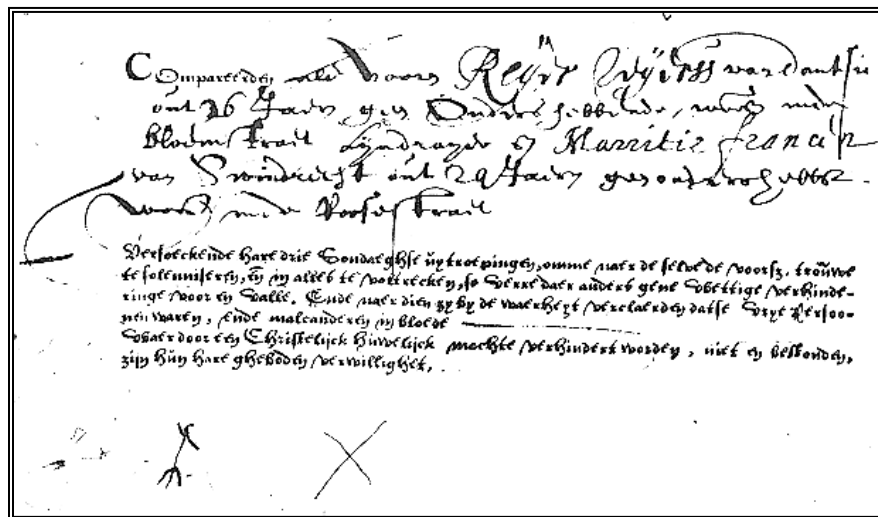 Compareerden als Voorn Reijer Wijers van dantsic
out 26 Jaer geen Ouders hebbende, woont inde
bloemstraet Lijndraijer en Marritie francen
van Swindrecht out 29 Jaer geen ouders hebbe
woont inde Roosestraet
Versoeckende hare drie Sondaeghse uytroepingen, omme naer de selvede voorsz. trouwe
te solenniseren, en in alles te voltrecken, so verre daer anders gene Wettige verhinde-
ringe voor en valle. Ende naer dien zy by de waerheyt verclaerden datse vrye Persoo-
nen waren, ende malcanderen in bloede
Waer door een Christelijck Huwelijck mochte verhindert worden, niet en bestonden,
zijn hun hare gheboden verwillighet.